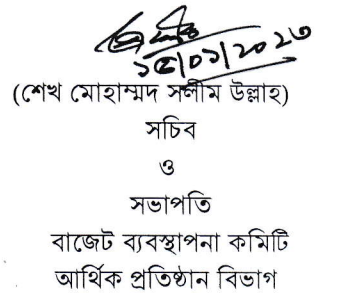 ১৫/০১/২০২৩
(শেখ মোহাম্মদ সলীম উল্লাহ)
সচিব
ও
সভাপতি
বাজেট ব্যবস্থাপনা কমিটি
আর্থিক প্রতিষ্ঠান বিভাগ